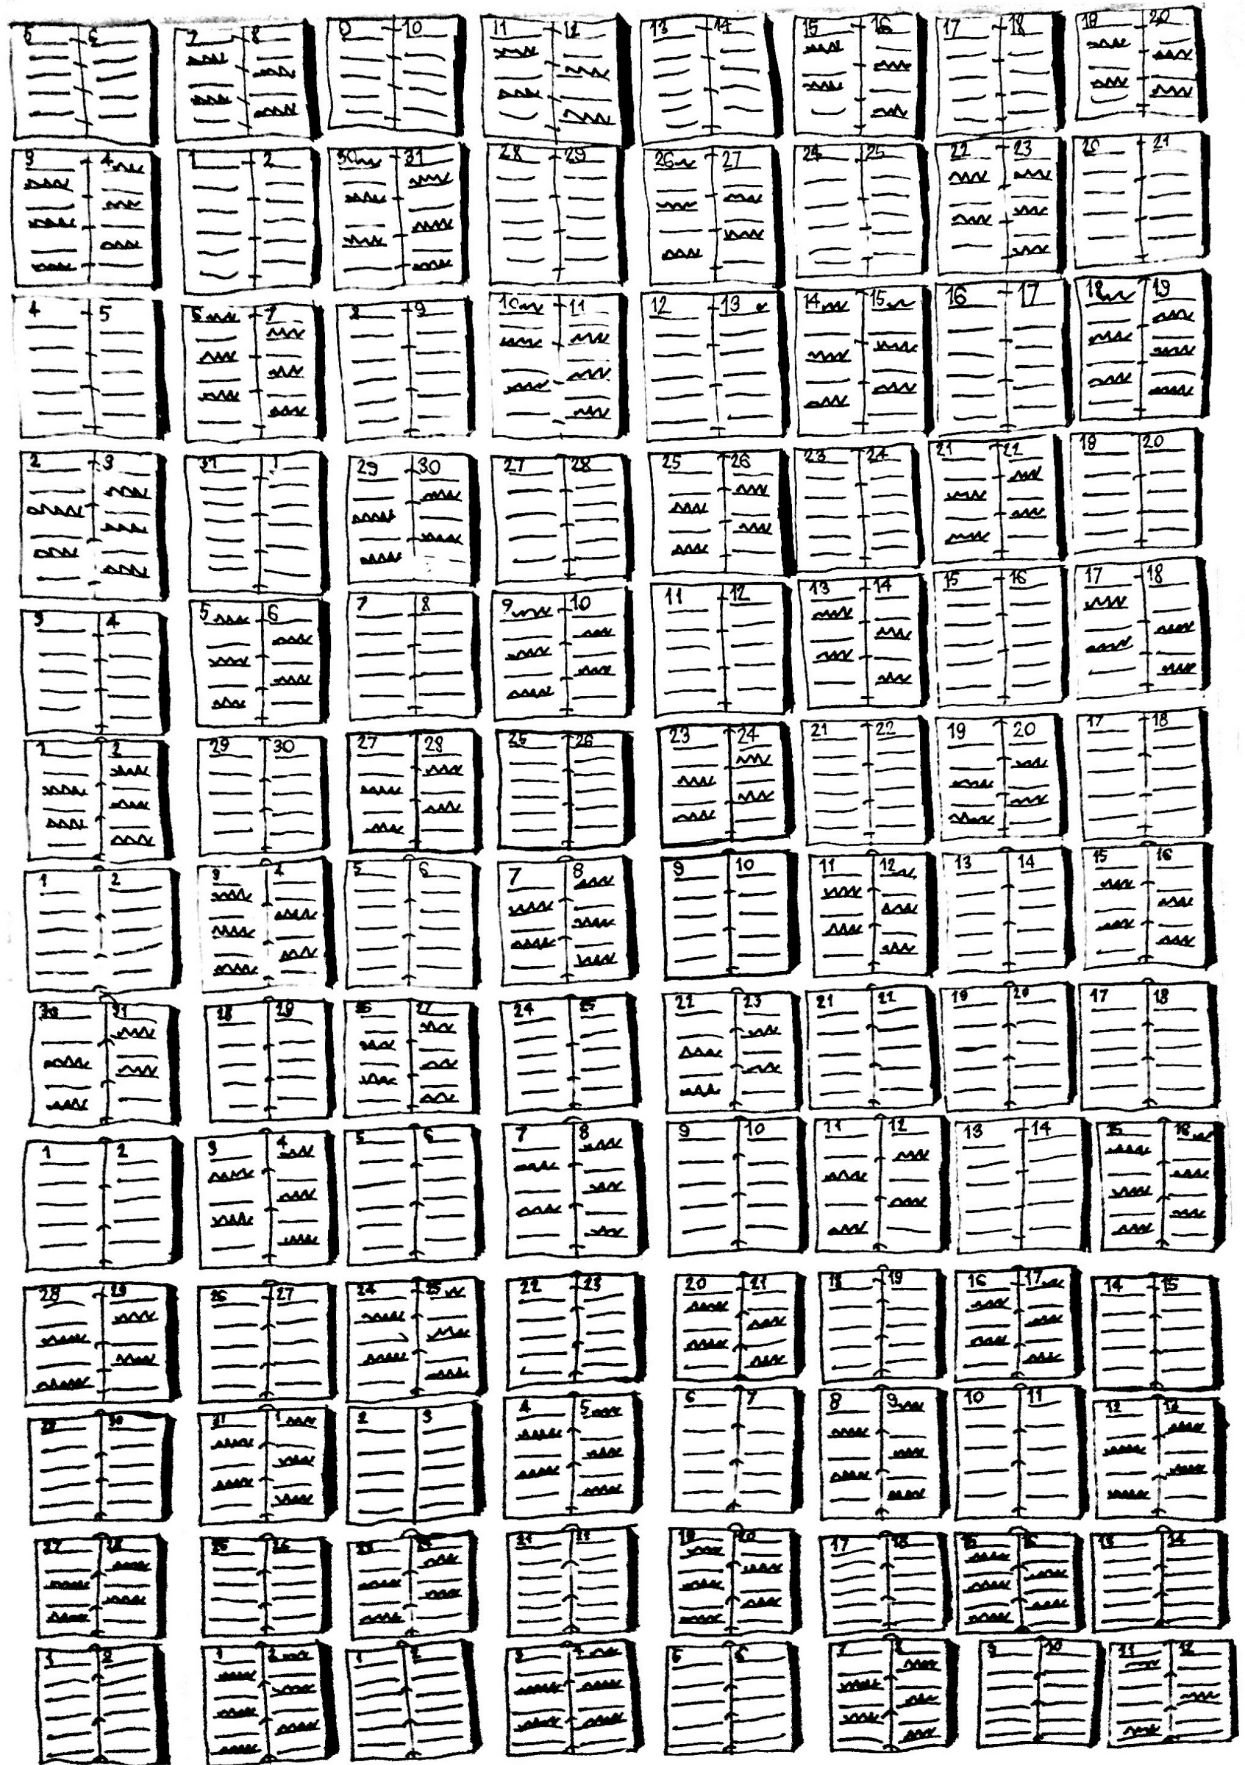 5 6 7 8 9 10 11 12 13 14 15 16 17 18 19 20
3 4 1 2 30 31 28 29 26 27 24 25 22 23 20 21
4 5 6 7 8 9 10 11 12 13 14 15 16 17 18 19
2 3 31 1 29 30 27 28 25 26 23 24 21 22 19 20
3 4 5 6 7 8 9 10 11 12 13 14 15 16 17 18
1 2 29 30 27 28 25 26 23 24 21 22 19 20 17 18
1 2 3 4 5 6 7 8 9 10 11 12 13 14 15 16
30 31 28 29 26 27 24 25 22 23 21 22 19 20 17 18
1 2 3 4 5 6 7 8 9 10 11 12 13 14 15 16
28 29 26 27 24 25 22 23 20 21 18 19 16 17 14 15
29 30 31 1 2 3 4 5 6 7 8 9 10 11 12 13
27 28 25 26 23 21 19 20 17 18 15 16 13 14
1 2 1 2 1 2 3 4 5 6 7 8 9 10 11 12